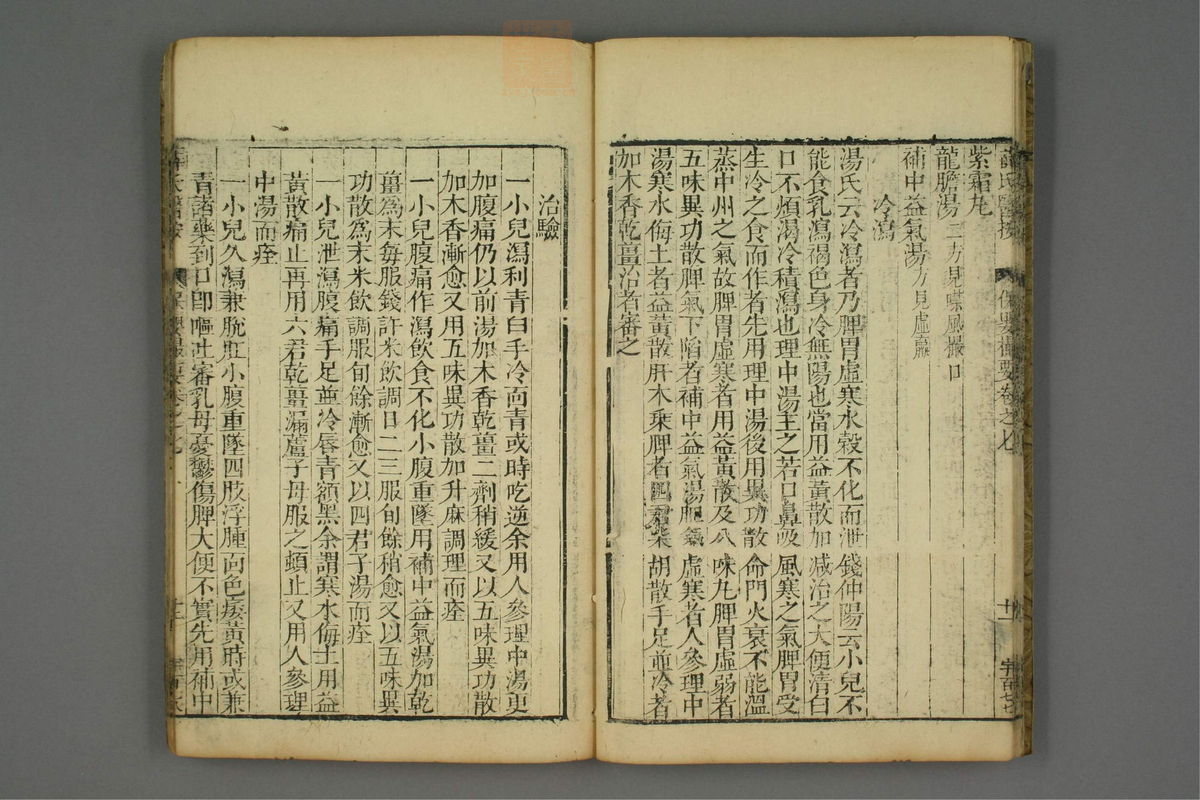 薛氏醫按 保嬰撮要卷之七 十一
紫霜丸
龍膽湯二方見噤風撮口
補中益氣湯方見虛羸
冷瀉
湯氏云冷瀉者乃脾胃虛寒水穀不化而泄錢仲陽云小兒不
能食乳瀉褐色身冷無陽也當用益黃散加減治之大便清白
口不煩渴冷積瀉也理中湯主之若口鼻吸風寒之氣脾胃受
生冷之食而作者先用理中湯後用異功散命門火衰不能溫
蒸中州之氣故脾胃虛寒者用益黃散及八味丸脾胃虛弱者
五味異功散脾氣下陷者補中益氣湯脾氣虛寒者人參理中
湯寒水侮土者益黃散肝木乘脾者四君柴胡散手足並冷者
加木香乾薑治者審之
治驗
一小兒瀉利青白手冷而青或時吃逆余用人參理中湯更
加腹痛仍以前湯加木香乾薑二劑稍緩又以五味異功散
加木香漸愈又用五味異功散加升麻調理而痊
一小兒腹痛作瀉飲食不化小腹重墜用補中益氣湯加乾
薑爲末每服錢許米飲調日二三服旬餘稍愈又以五味異
功散爲末米飲調服旬餘漸愈又以四君子湯而痊
一小兒泄瀉腹痛手足並冷唇青額黑余謂寒水侮土用益
黃散痛止再用六君乾薑漏蘆子母服之頓止又用人參理
中湯而痊
一小兒久瀉兼脫肛小腹重墜四肢浮腫面色痿黃時或兼
青諸藥到口即嘔吐審乳母憂鬱傷脾大便不實先用補中
薛氏醫按 保嬰撮要卷之七 十二